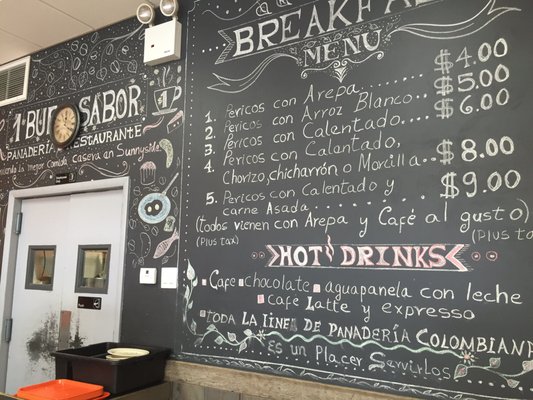 BREAKFA
MENU
1. Pericos con Arepa $4.00
2. Pericos con Arroz Blanco $5.00
3. Pericos con Calentado $6.00
4. Pericos con Calantado,
Chorizo, chicharrón o Morcilla $8.00
5. Pericos con Calentado y
carne Asada $9.00
(Todos vienen con Arepa y Café al gusto)
(Plus tax) (Plus tax
HOT DRINKS
Cafe chocolate aguapanela con leche
cafe Latte y expresso
Toda La Linea de Panadería Colombiana
Es un Placer Servirlos
SABOR
PANADERÍA RESTAURANTE
la mejor Comida casera en Sunnyside